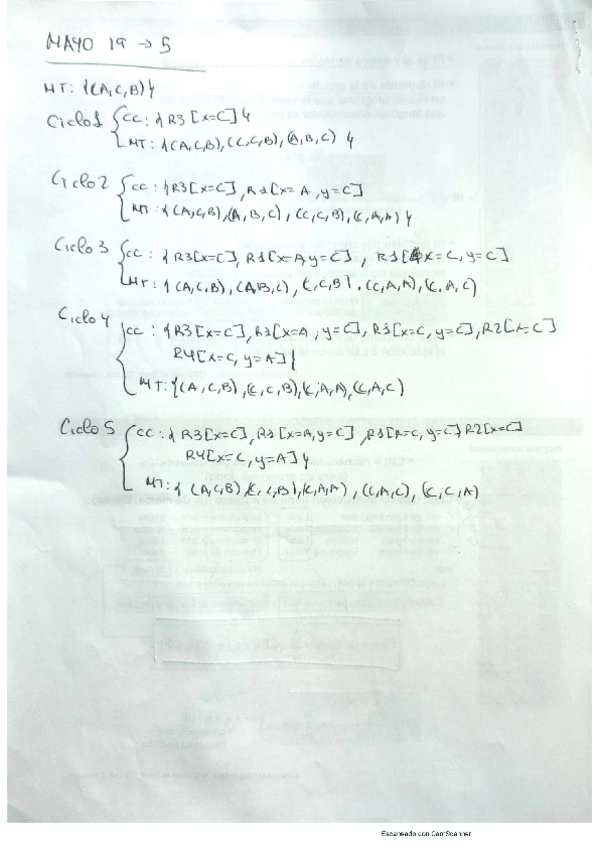 MAYO 19 → 5
MT: {(A,C,B)}
Ciclo 1 { CC: {R3[x=C]}
MT: {(A,C,B), (C,C,B), (A,B,C)}
Ciclo 2 { CC: {R3[x=C], R1[x=A, y=C]
MT: {(A,C,B), (A,B,C), (C,C,B), (C,A,A)}
Ciclo 3 { CC: {R3[x=C], R1[x=A y=C], R1[x=C, y=C]
MT: {(A,C,B), (A,B,C), (C,C,B), (C,A,A), (C,A,C)
Ciclo 4 { CC: {R3[x=C], R1[x=A, y=C], R1[x=C, y=C], R2[x=C]
R4[x=C, y=A]}
MT: {(A,C,B), (C,C,B), (C,A,A), (C,A,C)
Ciclo 5 { CC: {R3[x=C], R1[x=A, y=C], R1[x=C, y=C], R2[x=C]
R4[x=C, y=A]}
MT: {(A,C,B), (C,C,B), (C,A,A), (C,A,C), (C,C,A)
Escaneado con CamScanner